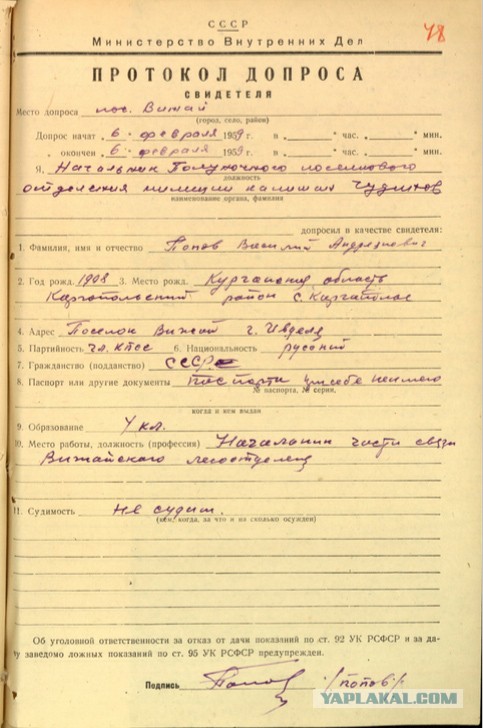 СССР
48
Министерство Внутренних Дел
ПРОТОКОЛ ДОПРОСА
СВИДЕТЕЛЯ
Место допроса пос. Вижай
(город, село, район)
Допрос начат „6“ февраля 1959 г. в „ “ час. „ “ мин.
„ окончен „6“ февраля 1959 г. в „ “ час. „ “ мин.
Я, Начальник Полуночного поселкового
должность
отделения милиции капитан Чудинов
наименование органа, фамилия
допросил в качестве свидетеля:
1. Фамилия, имя и отчество Попов Василий Андреевич
2. Год рожд. 1908 3. Место рожд. Курганская область
Каргопольский район с.
4. Адрес Поселок Вижай г. Ивделя
5. Партийность чл. КПСС 6. Национальность русский
7. Гражданство (подданство) СССР
8. Паспорт или другие документы паспорта при себе неимею
№ паспорта, № серия,
когда и кем выдан
9. Образование 4 кл.
10. Место работы, должность (профессия) Начальник части связи
Вижайского
11. Судимость Не судим.
(кем, когда, за что и на сколько осужден)
Об уголовной ответственности за отказ от дачи показаний по ст. 92 УК РСФСР и за да-
чу заведомо ложных показаний по ст. 95 УК РСФСР предупрежден.
Подпись Попов /попов/
YAPLAKAL.COM